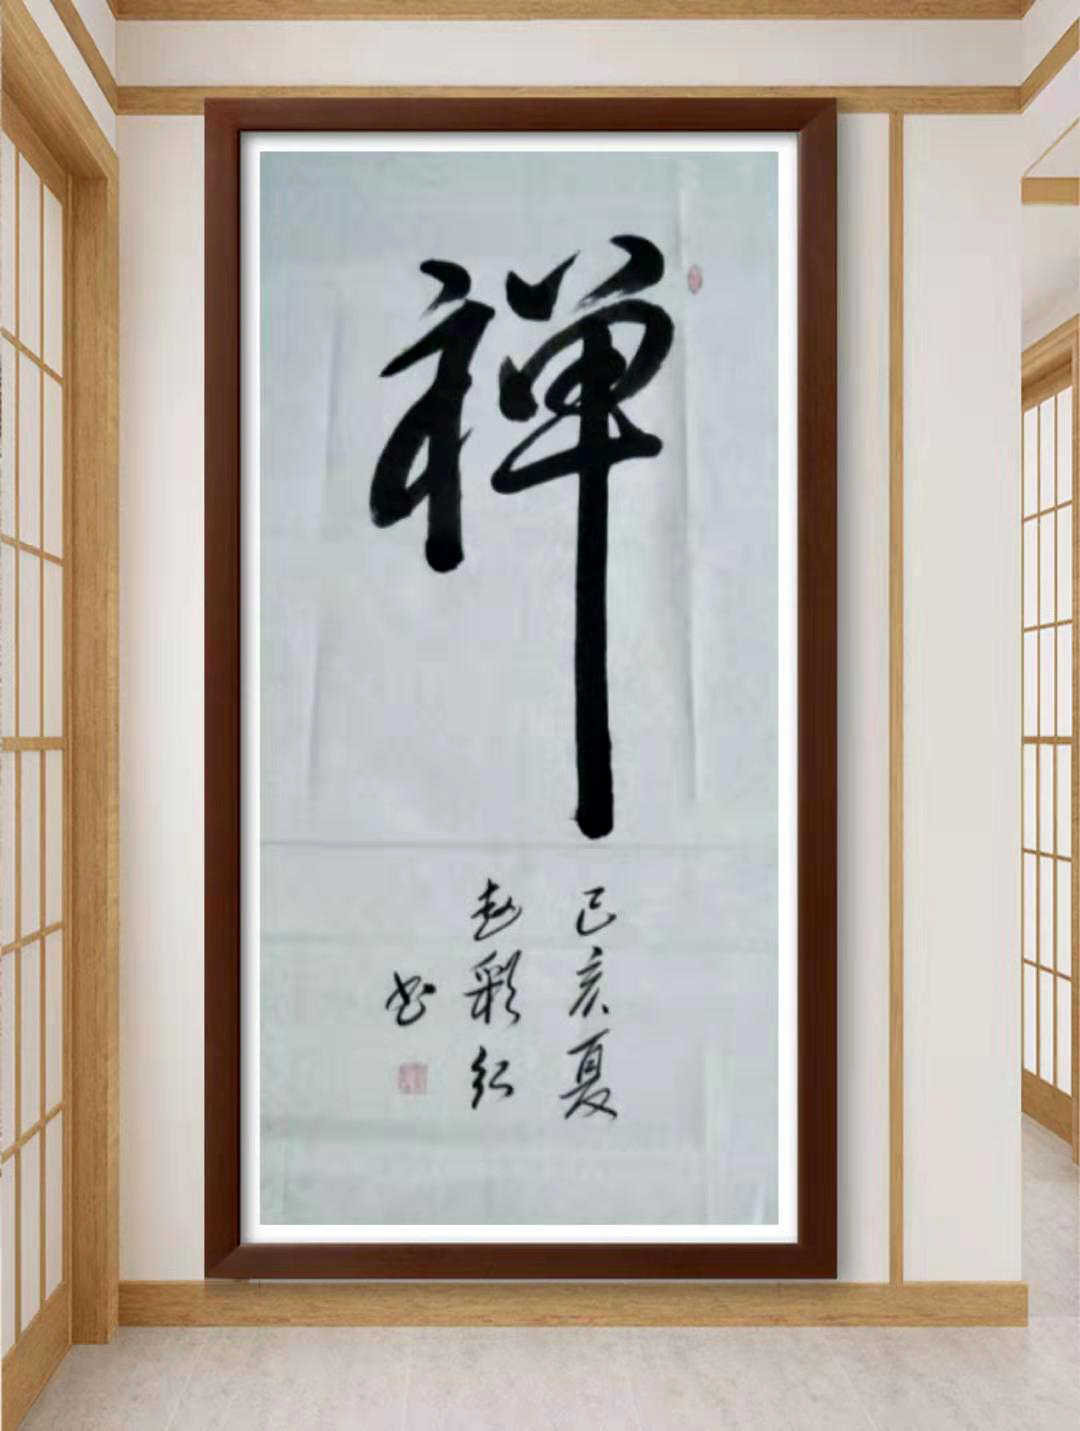 禅
己亥夏
赵彩红
书